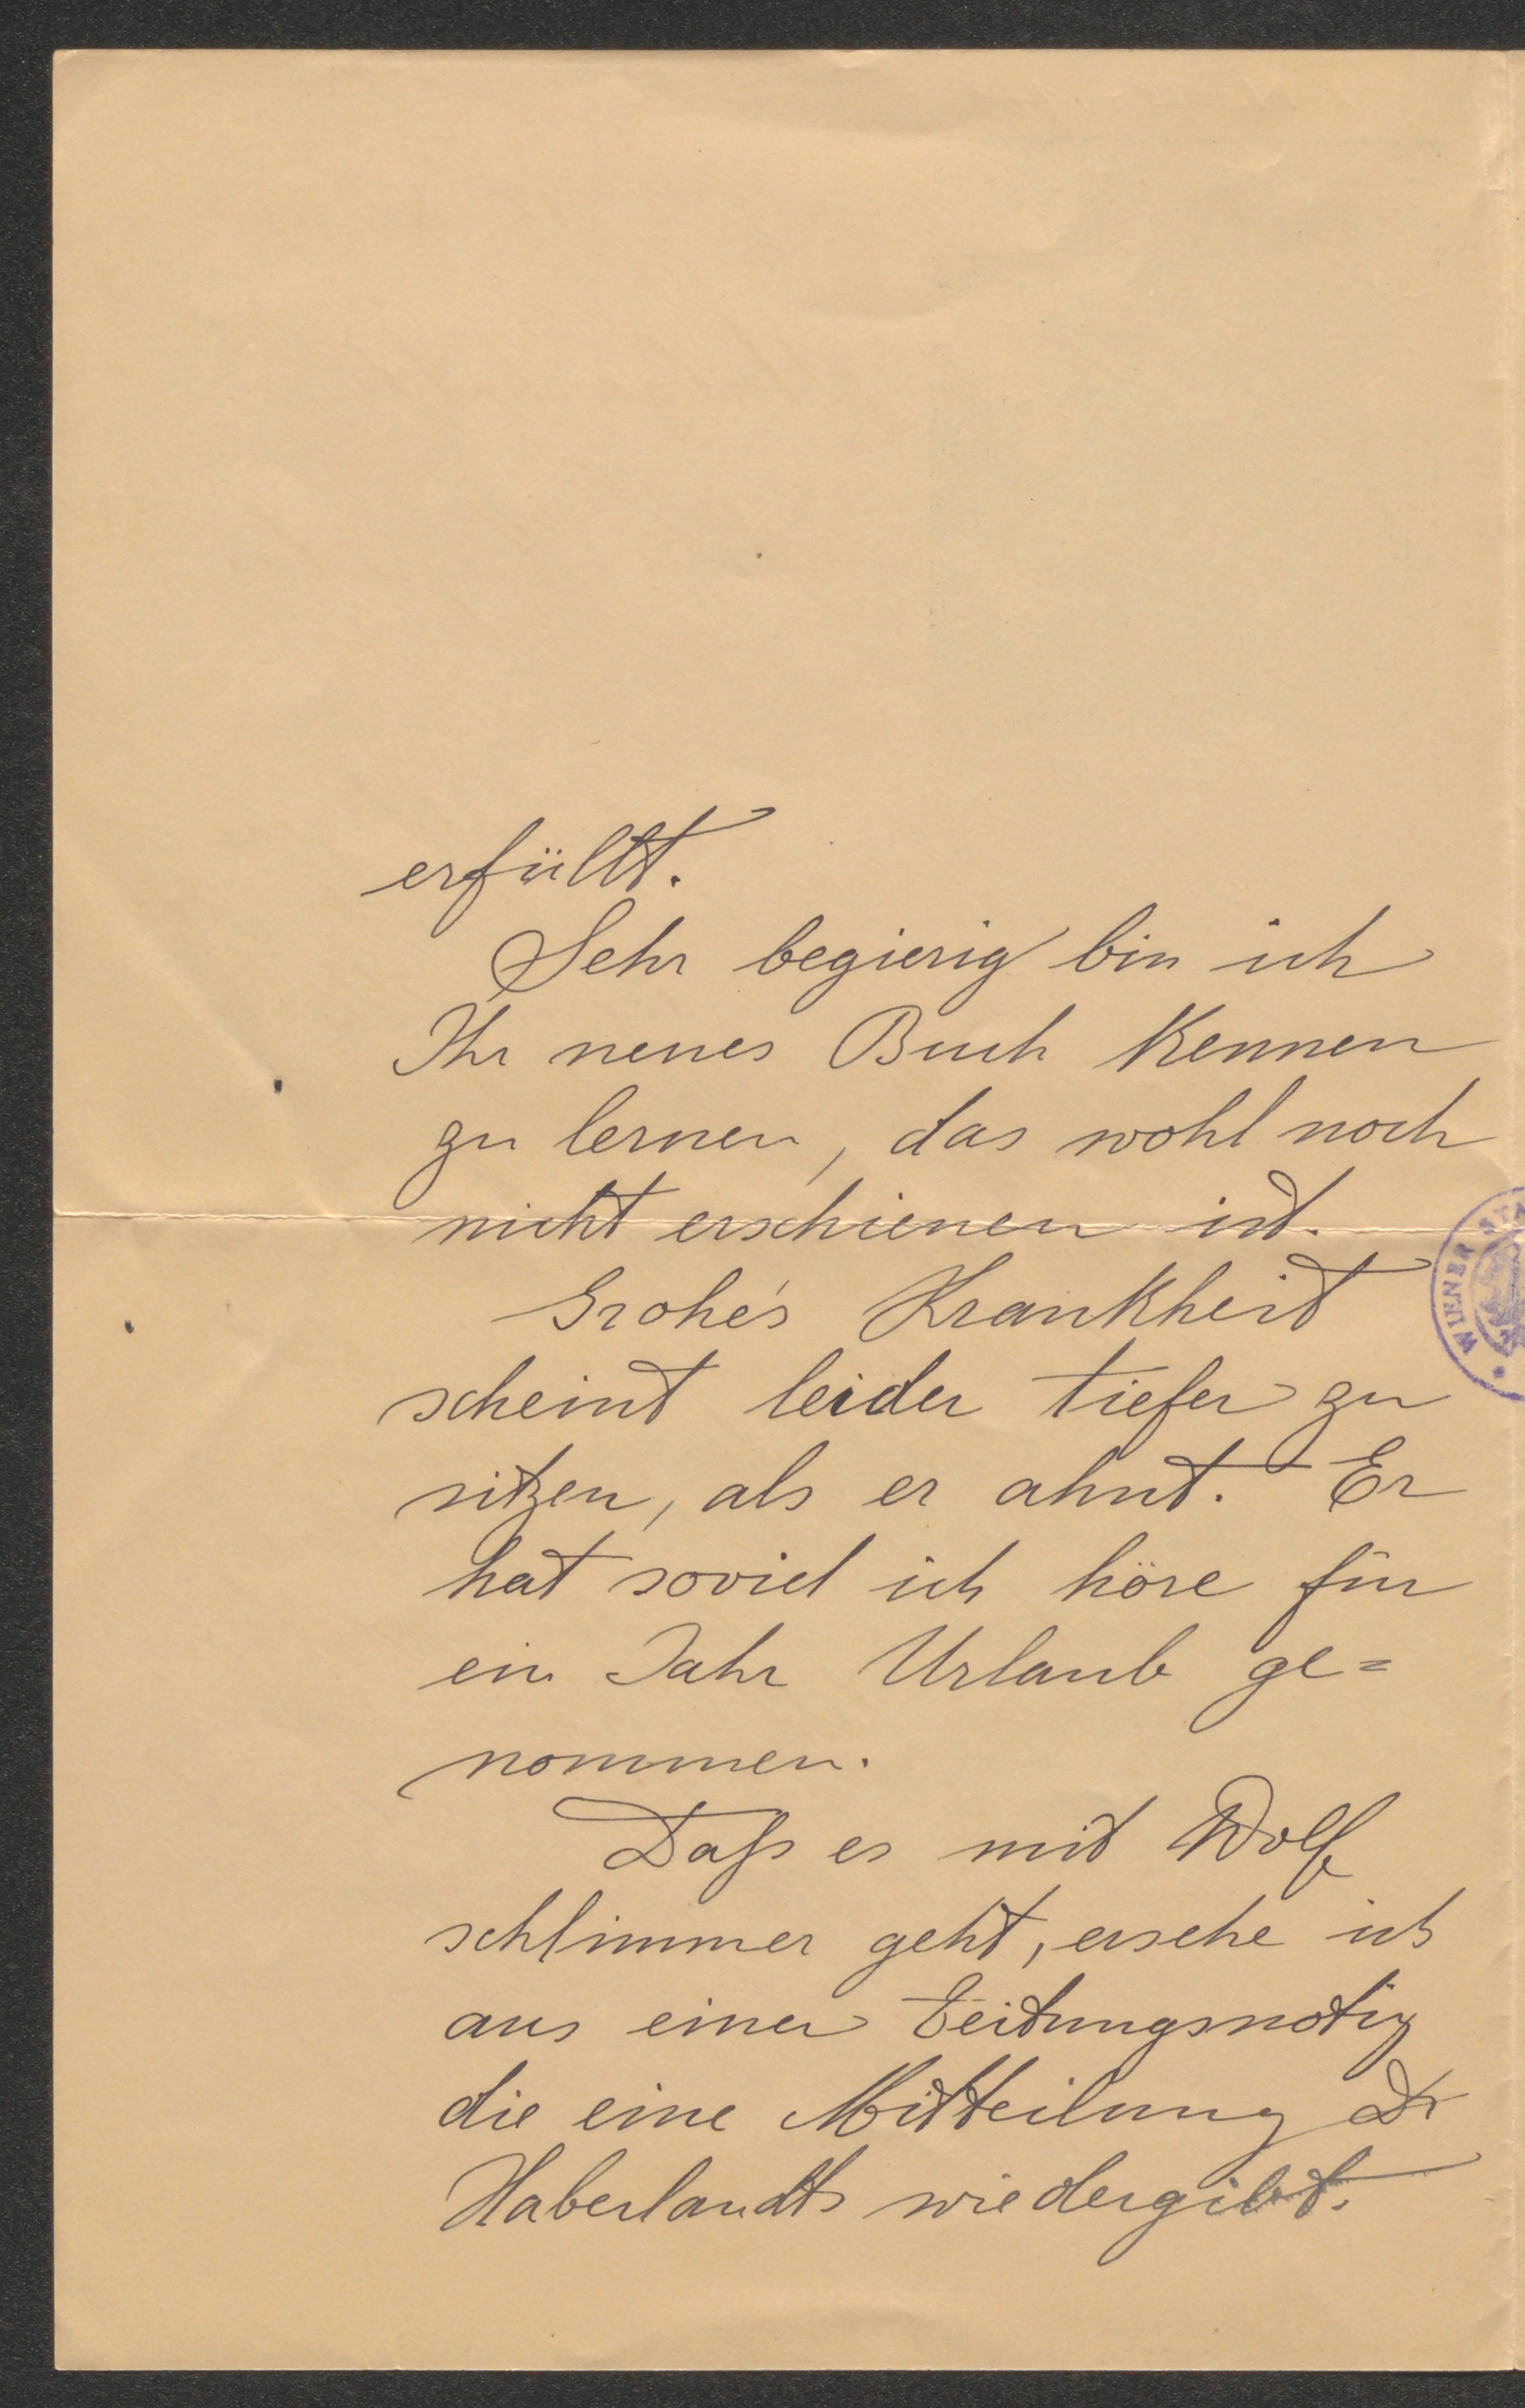 erfüllt.
Sehr begierig bin ich
Ihr neues Buch kennen
zu lernen, das wohl noch
nicht erschienen ist.
Grohe's Krankheit
scheint leider tiefer zu
sitzen, als er ahnt. Er
hat soviel ich höre für
ein Jahr Urlaub ge=
nommen.
Daß es mit Wolf
schlimmer geht, ersehe ich
aus einer Zeitungsnotiz
die eine Mitteilung Dr
Haberlandts wiedergibt.
WIENER